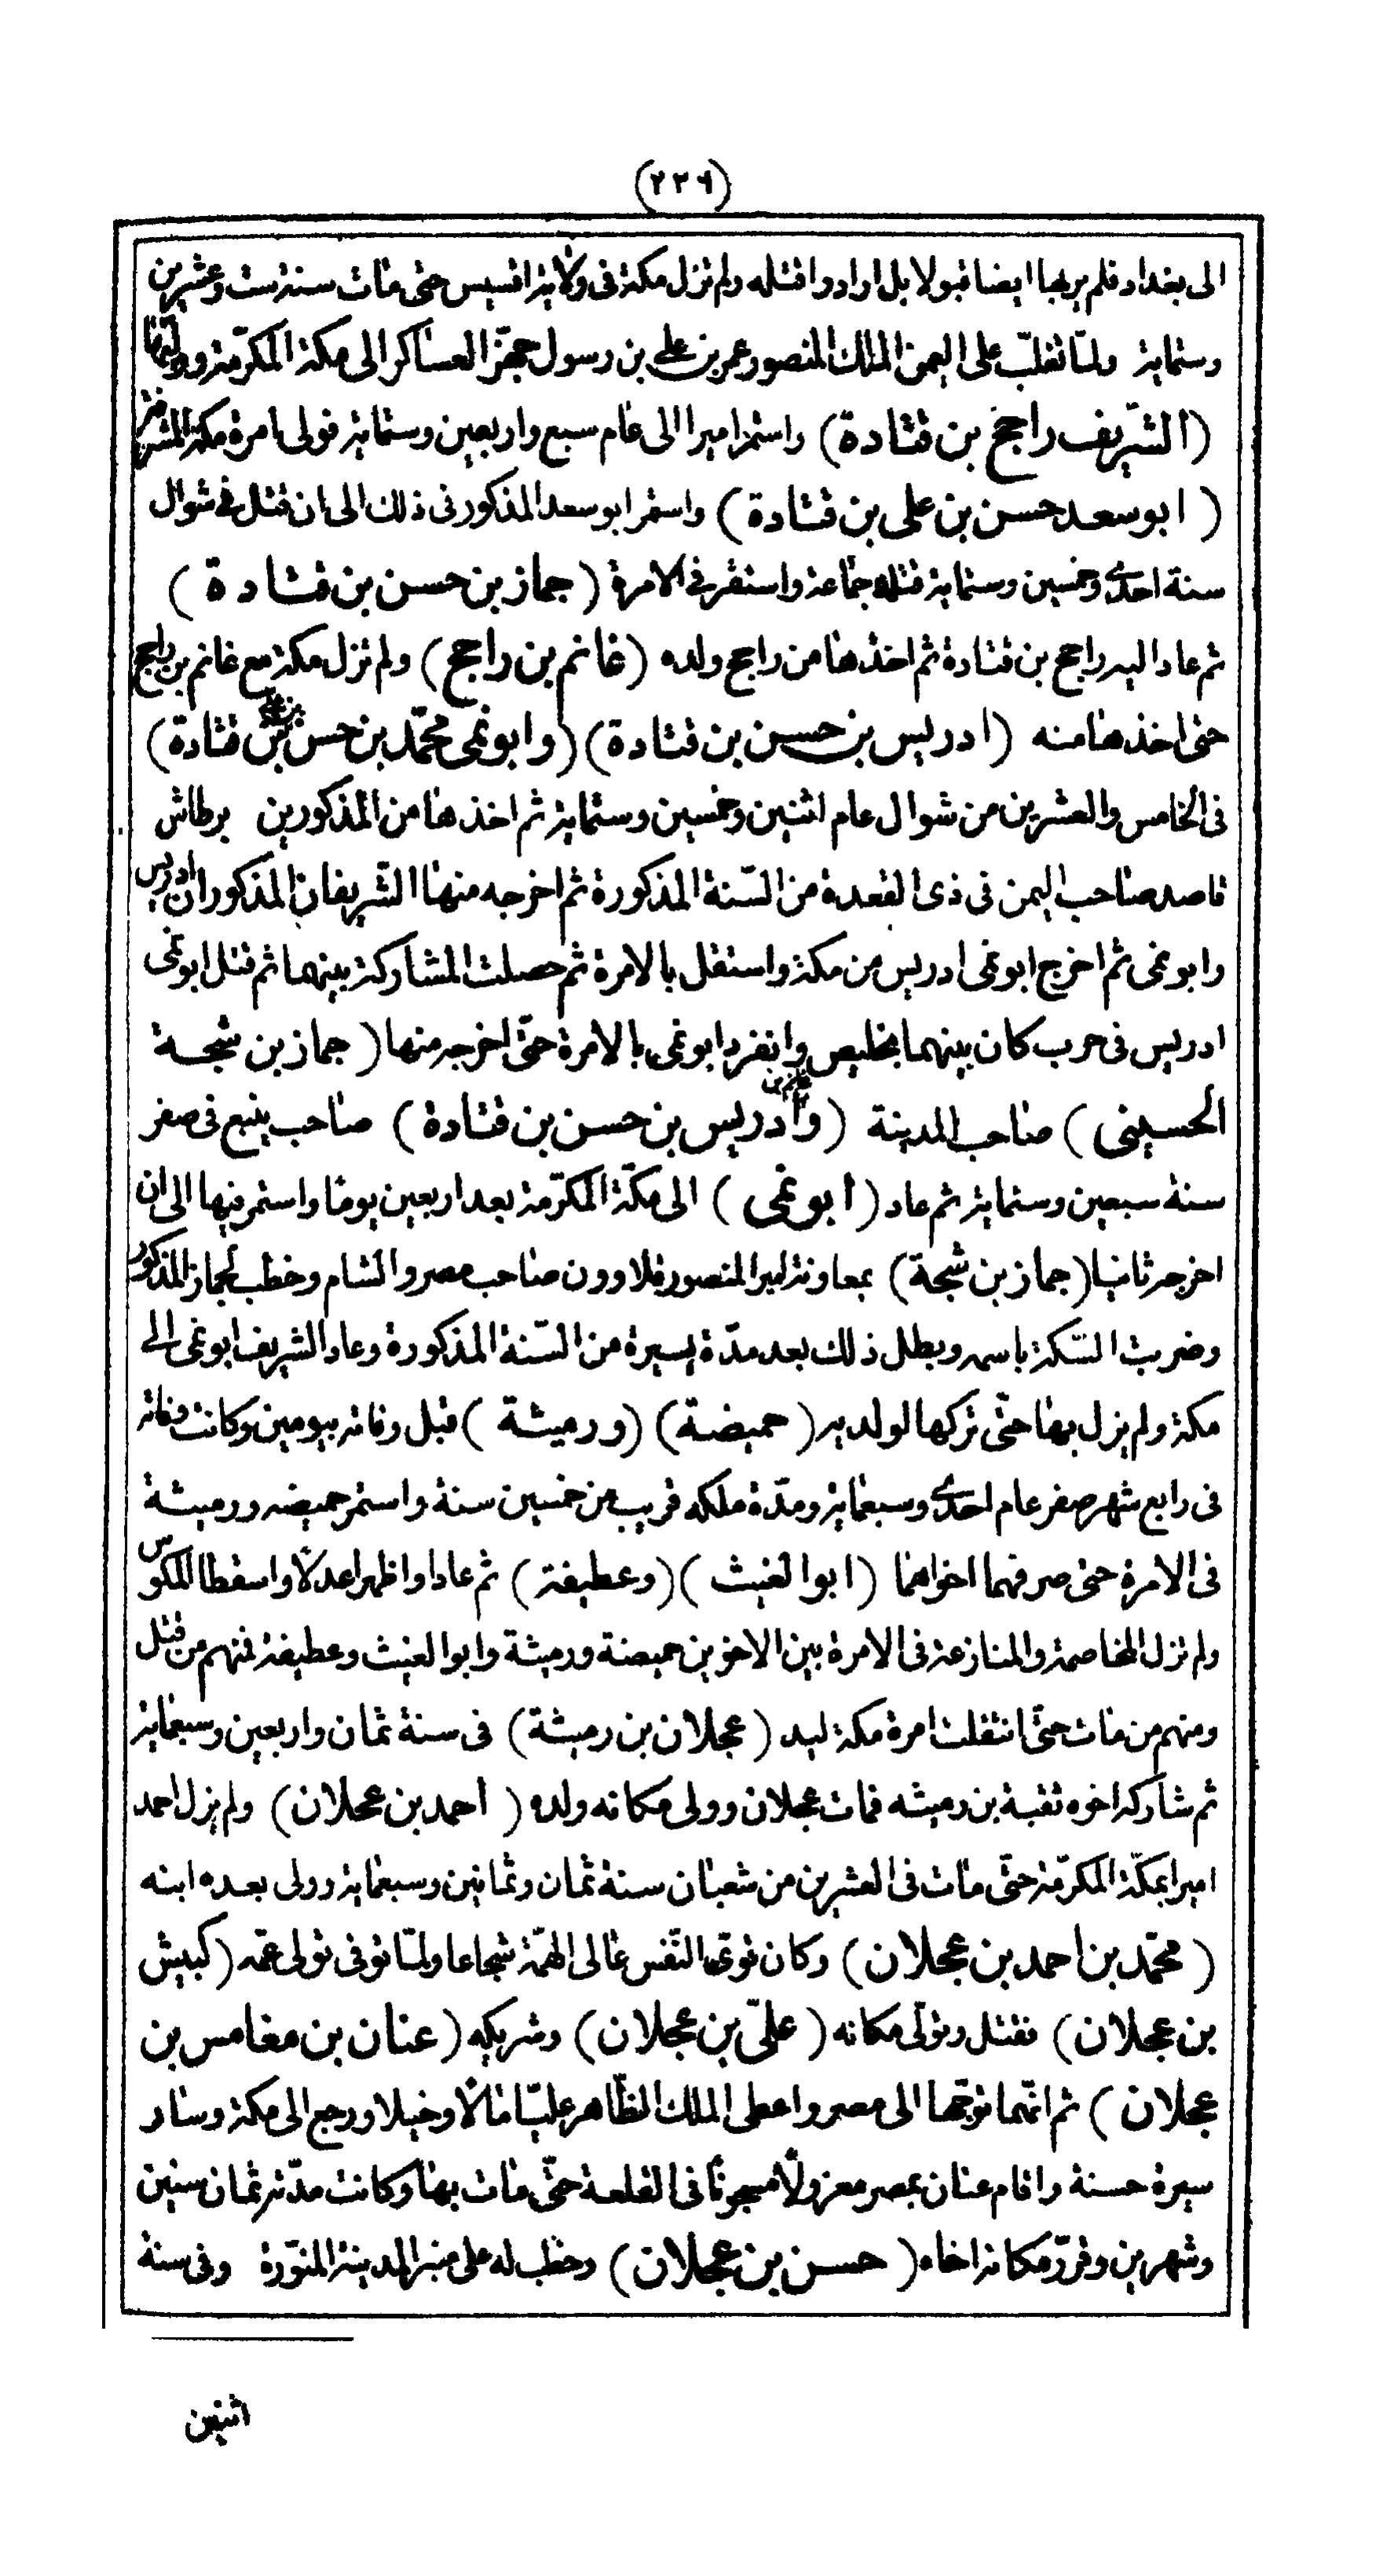 (٢٢٦)
الى بغداد فلم ير بها ايضا قبولا بل ارادوا قتله ولم تزل مكة فى ولاية اقسيس حتى مات سنة ست وعشرين
وستماية ولما تغلّب على اليمن الملك المنصور عمر بن على بن رسول جهّز العساكر الى مكة المكرّمة
(الشريف راجح بن قتادة) واستمر اميرا الى عام سبع واربعين وستماية فولى امرة مكة المشرفة
(ابو سعد حسن بن على بن قتادة) واستمر ابو سعد المذكور فى ذلك الى ان قتل فى شوال
سنة احدى وخمسين وستماية قتله جماعة واستقر فى الامرة (جماز بن حسن بن قتادة)
ثم عاد اليه راجح بن قتادة ثم اخذها من راجح ولده (غانم بن راجح) ولم تزل مكة مع غانم بن راجح
حتى اخذها منه (ادريس بن حسن بن قتادة) (وابو نمى محمّد بن حسن بن على بن قتادة)
فى الخامس والعشرين من شوال عام اثنين وخمسين وستماية ثم اخذها من المذكورين برطاش
قاصد صاحب اليمن فى ذى القعدة من السّنة المذكورة ثم اخرجه منها الشّريفان المذكوران ادريس
وابو نمى ثم اخرج ابو نمى ادريس من مكة واستقل بالامرة ثم حصلت المشاركة بينهما ثم قتل ابو نمى
ادريس فى حرب كان بينهما بخليص وانفرد ابو نمى بالامرة حتّى اخرجه منها (جماز بن شيحة
الحسينى) صاحب المدينة (وغانم بن ادريس بن حسن بن قتادة) صاحب ينبع فى صفر
سنة سبعين وستماية ثم عاد (ابو نمى) الى مكّة المكرّمة بعد اربعين يوما واستمر فيها الى ان
اخرجه ثانيا (جماز بن شيحة) بمعاونة امير المنصور قلاوون صاحب مصر والشام وخطب لجماز المذكور
وضربت السّكة باسمه وبطل ذلك بعد مدّة يسيرة من السّنة المذكورة وعاد الشريف ابو نمى الى
مكة ولم يزل بها حتّى تركها لولديه (حميضة) (ورميثة) قبل وفاته بيومين وكانت وفاته
فى رابع شهر صفر عام احدى وسبعماية ومدّة ملكه قريب من خمسين سنة واستمر حميضه ورميثة
فى الامرة حتى صرفهما اخواهما (ابو الغيث) (وعطيفة) ثم عادا واظهرا عدلا واسقطا المكوس
ولم تزل المخاصمة والمنازعة فى الامرة بين الاخوين حميضة ورميثة وابو الغيث وعطيفة فمنهم من قتل
ومنهم من مات حتّى انتقلت امرة مكة ليد (عجلان بن رميثة) فى سنة ثمان واربعين وسبعماية
ثم شاركه اخوه ثقبة بن رميثه فمات عجلان وولى مكانه ولده (احمد بن عجلان) ولم يزل احمد
اميرا بمكّة المكرّمة حتّى مات فى العشرين من شعبان سنة ثمان وثمانين وسبعماية وولى بعده ابنه
(محمّد بن احمد بن عجلان) وكان قوىّ النّفس عالى الهمّة شجاعا ولمّا توفى تولى عمّه (كبيش
بن عجلان) فقتل وتولّى مكانه (علىّ بن عجلان) وشريكه (عنان بن مغامس بن
عجلان) ثم انّهما توجّها الى مصر واعطى الملك الظّاهر عليّا مالًا وخيلا ورجع الى مكة وسار
سيرة حسنة واقام عنان بمصر معزولًا مسجونًا فى القلعة حتّى مات بها وكانت مدّته ثمان سنين
وشهرين وقرّر مكانه اخاه (حسن بن عجلان) وخطب له على منبر المدينة المنوّرة وفى سنة
اثنين